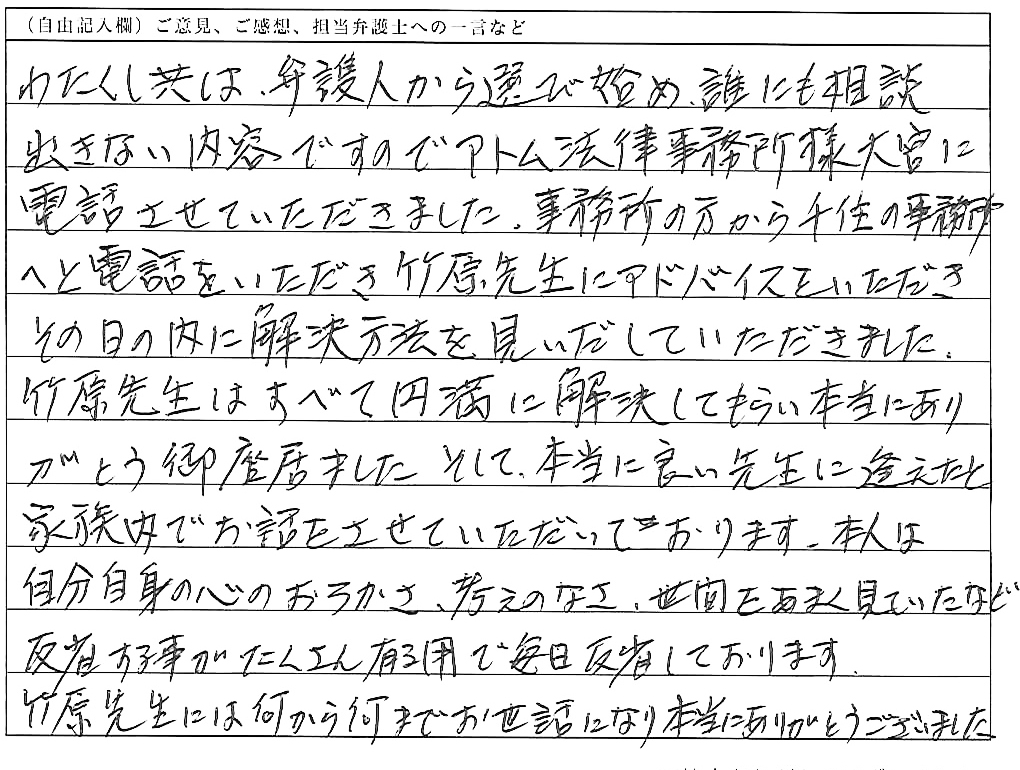 （自由記入欄）ご意見、ご感想、担当弁護士への一言など
わたくし共は、弁護人から選び始め、誰にも相談
出きない内容ですのでアトム法律事務所様大宮に
電話させていただきました。事務所の方から千住の事務所
へと電話をいただき竹原先生にアドバイスをいただき
その日の内に解決方法を見いだしていただきました。
竹原先生はすべて円満に解決してもらい本当にあり
がとう御座居ました そして、本当に良い先生に逢えたと
家族内でお話をさせていただいております。本人は
自分自身の心のおろかさ、考えのなさ、世間をあまく見ていたなど
反省する事がたくさん有る用で毎日反省しております。
竹原先生には何から何までお世話になり本当にありがとうございました